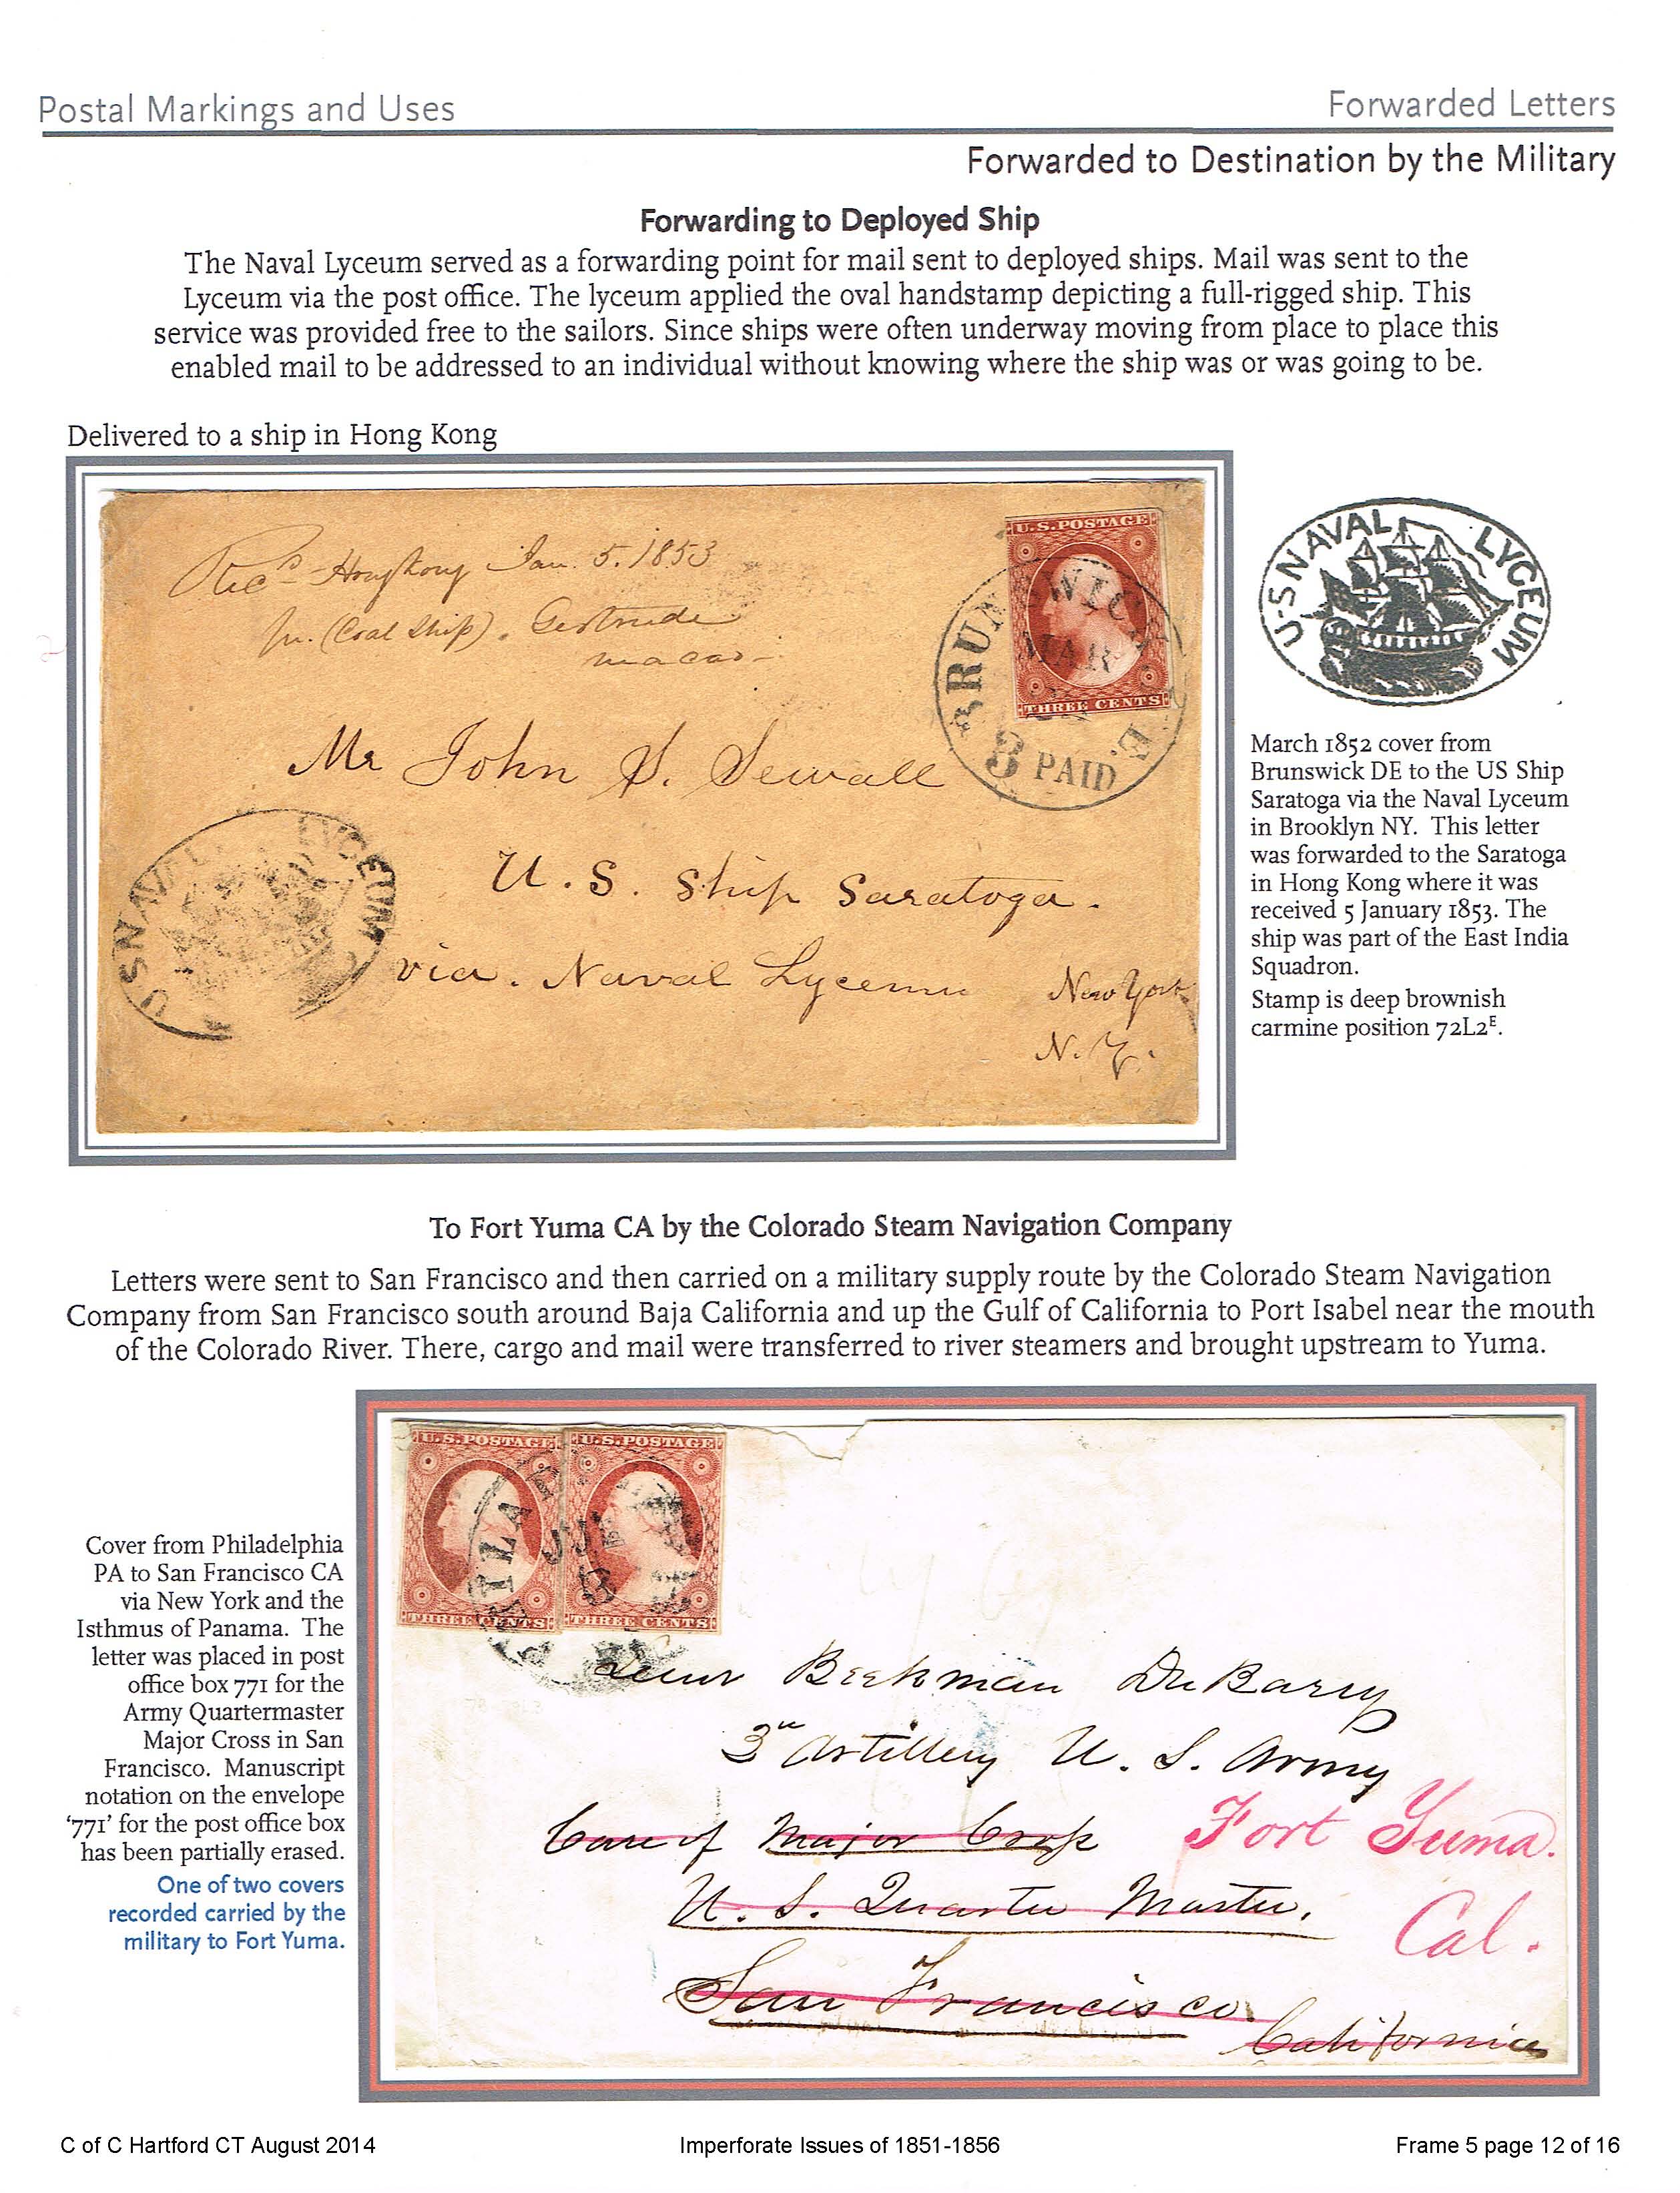 Postal Markings and Uses
Forwarded Letters
Forwarded to Destination by the Military
Forwarding to Deployed Ship
The Naval Lyceum served as a forwarding point for mail sent to deployed ships. Mail was sent to the
Lyceum via the post office. The lyceum applied the oval handstamp depicting a full-rigged ship. This
service was provided free to the sailors. Since ships were often underway moving from place to place this
enabled mail to be addressed to an individual without knowing where the ship was or was going to be.
Delivered to a ship in Hong Kong
Recd Hong Kong Jan. 5. 1853
pr. (Coal Ship). Gertrude
macao
U.S. POSTAGE
THREE CENTS
BRUNSWICK
MAR
E.
3 PAID
Mr John S. Sewall
U. S. Ship Saratoga.
via. Naval Lyceum
New York
N. Y.
U S NAVAL LYCEUM
U·S NAVAL LYCEUM
March 1852 cover from
Brunswick DE to the US Ship
Saratoga via the Naval Lyceum
in Brooklyn NY. This letter
was forwarded to the Saratoga
in Hong Kong where it was
received 5 January 1853. The
ship was part of the East India
Squadron.
Stamp is deep brownish
carmine position 72L2E.
To Fort Yuma CA by the Colorado Steam Navigation Company
Letters were sent to San Francisco and then carried on a military supply route by the Colorado Steam Navigation
Company from San Francisco south around Baja California and up the Gulf of California to Port Isabel near the mouth
of the Colorado River. There, cargo and mail were transferred to river steamers and brought upstream to Yuma.
Cover from Philadelphia
PA to San Francisco CA
via New York and the
Isthmus of Panama. The
letter was placed in post
office box 771 for the
Army Quartermaster
Major Cross in San
Francisco. Manuscript
notation on the envelope
‘771’ for the post office box
has been partially erased.
One of two covers
recorded carried by the
military to Fort Yuma.
U.S. POSTAGE
THREE CENTS
U.S. POSTAGE
THREE CENTS
Beekman DuBarry
3d Artillery U. S. Army
Care of Major Cross
Fort Yuma.
Cal.
U. S. Quarter Master.
San Francisco.
California
C of C Hartford CT August 2014
Imperforate Issues of 1851-1856
Frame 5 page 12 of 16